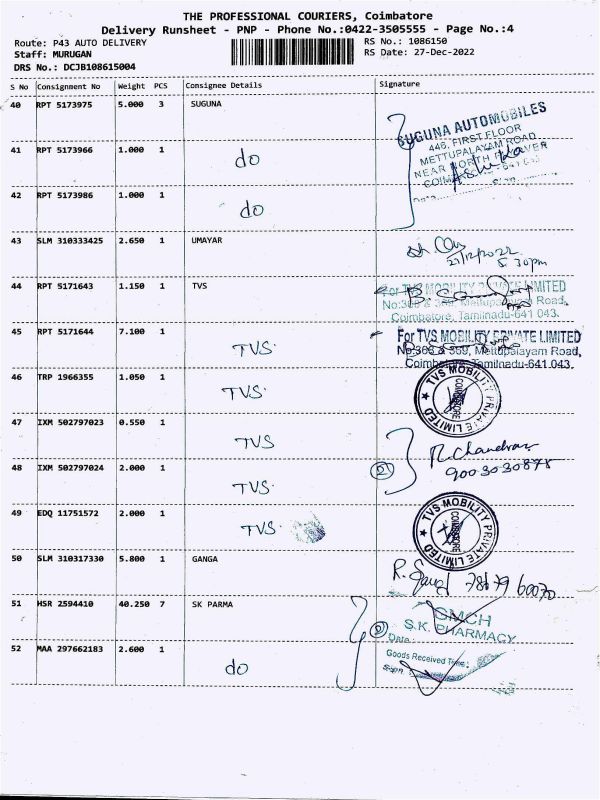 THE PROFESSIONAL COURIERS, Coimbatore
Delivery Runsheet - PNP - Phone No.:0422-3505555 - Page No.:4
Route: P43 AUTO DELIVERY
RS No.: 1086150
Staff: MURUGAN
RS Date: 27-Dec-2022
DRS No.: DCJB108615004
S No Consignment No Weight PCS Consignee Details Signature
40 RPT 5173975 5.000 3 SUGUNA
SUGUNA AUTOMOBILES
446, FIRST FLOOR
METTUPALAYAM ROAD
41 RPT 5173966 1.000 1 do
NEAR NORTH
42 RPT 5173986 1.000 1 do
43 SLM 310333425 2.650 1 UMAYAR
27/12/2022
5 30pm
44 RPT 5171643 1.150 1 TVS
For TVS MOBILITY PRIVATE LIMITED
No:308 & Mettupalayam Road,
Coimbatore, Tamilnadu-641 043.
45 RPT 5171644 7.100 1 TVS
For TVS MOBILITY PRIVATE LIMITED
Mettupalayam Road,
Coimbatore, Tamilnadu-641 043.
46 TRP 1966355 1.050 1 TVS
TVS MOBILITY PRIVATE LIMITED
COIMBATORE
47 IXM 502797023 0.550 1 TVS
R. Chandran
9003030878
48 IXM 502797024 2.000 1 TVS
49 EDQ 11751572 2.000 1 TVS
TVS MOBILITY PRIVATE LIMITED
COIMBATORE
50 SLM 310317330 5.800 1 GANGA
51 HSR 2594410 40.250 7 SK PARMA
GMCH
S.K. PHARMACY
Date
52 MAA 297662183 2.600 1 do
Goods Received Time:
Sign